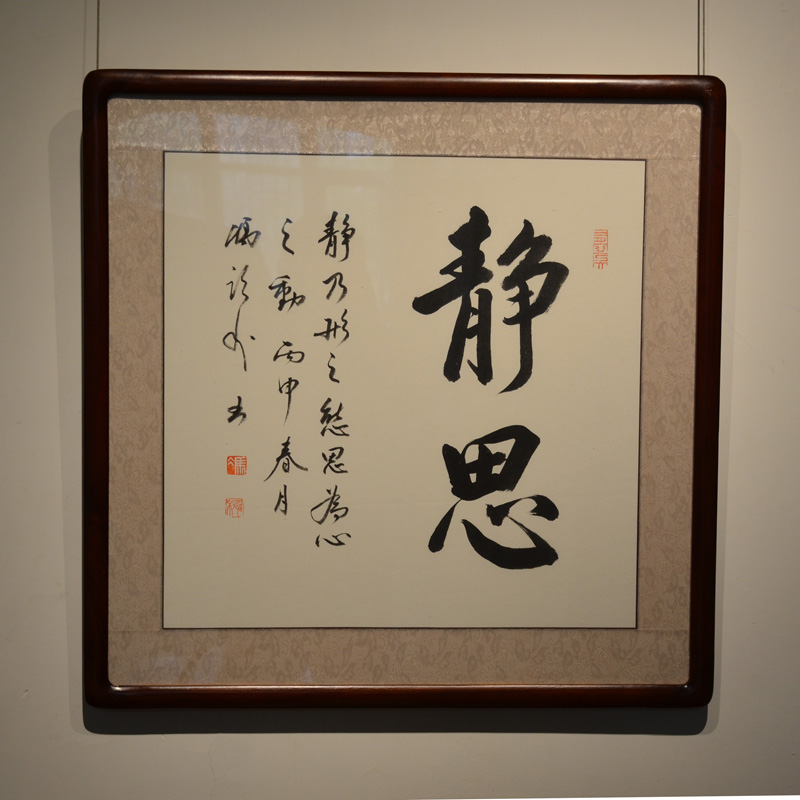 静思
静乃形之態思為心
之動丙申春月
馮书